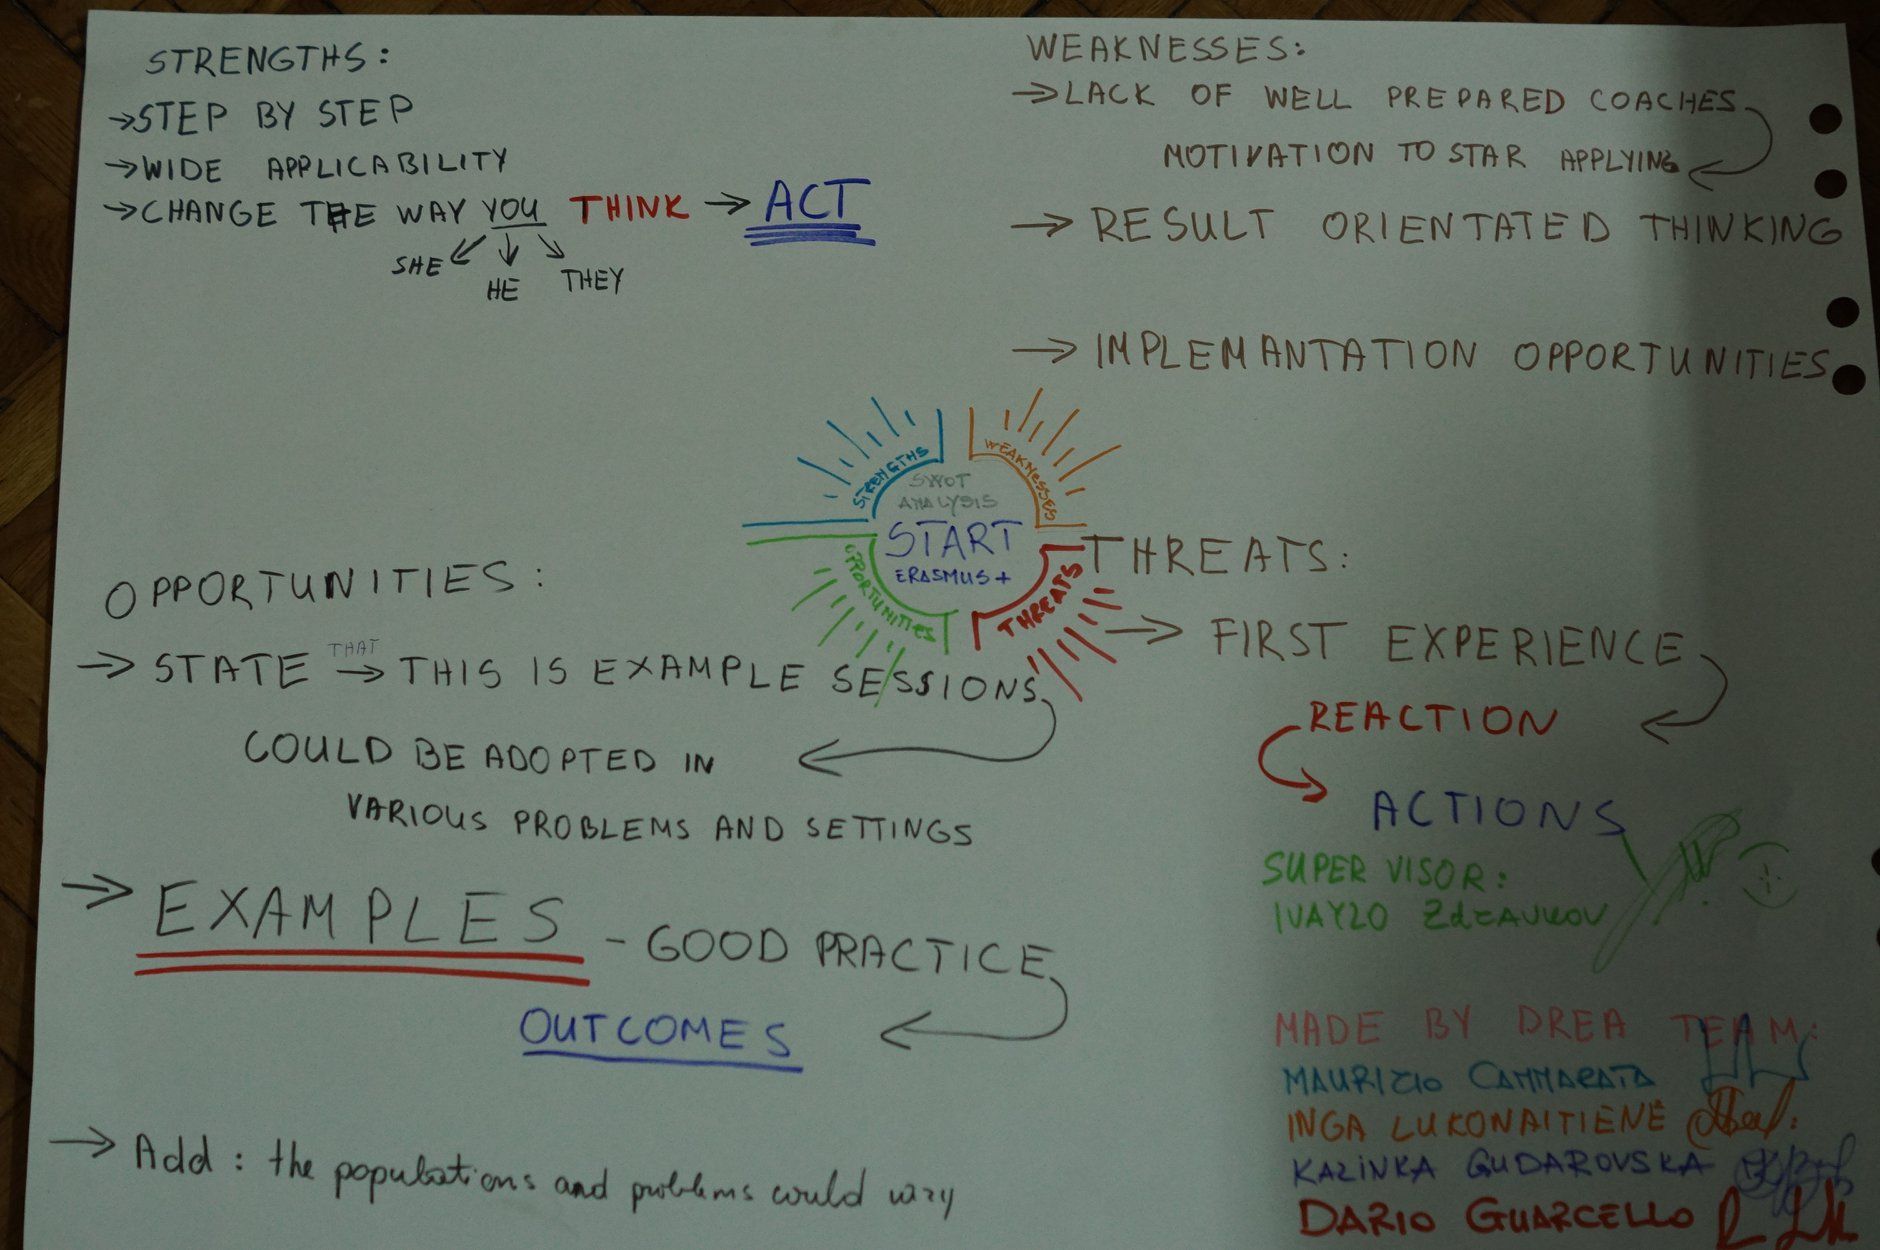 STRENGTHS:
→STEP BY STEP
→WIDE APPLICABILITY
→CHANGE THE WAY YOU THINK → ACT
SHE HE THEY
WEAKNESSES:
→LACK OF WELL PREPARED COACHES
MOTIVATION TO STAR APPLYING
→ RESULT ORIENTATED THINKING
→ IMPLEMANTATION OPPORTUNITIES
STRENGTHS
WEAKNESSES
SWOT
ANALYSIS
START
ERASMUS+
OPPORTUNITIES
THREATS
OPPORTUNITIES:
→ STATE THAT → THIS IS EXAMPLE SESSIONS
COULD BE ADOPTED IN
VARIOUS PROBLEMS AND SETTINGS
→ EXAMPLES - GOOD PRACTICE
OUTCOMES
→ Add: the populations and problems could vary
THREATS:
→ FIRST EXPERIENCE
REACTION
ACTIONS
SUPER VISOR:
IVAYLO
MADE BY DREA TEAM:
MAURIZIO CAMMARATA
INGA LUKONAITIENĖ
KALINKA GUDAROVSKA
DARIO GUARCELLO